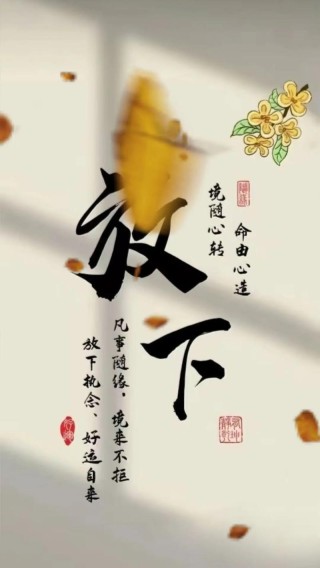 放下
命由心造
境随心转
凡事随缘、境来不拒
放下执念、好运自来